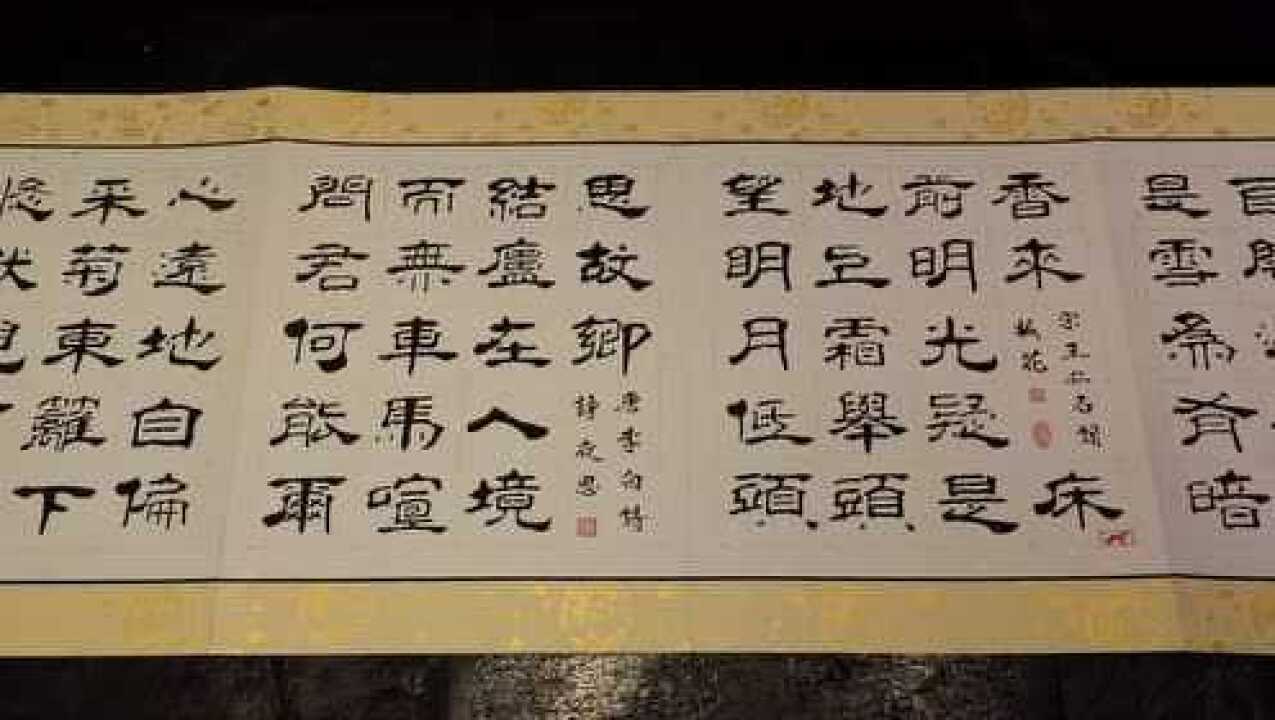 是雪為有暗
香來
宋王安石
梅花
床
前明光疑是
地上霜舉頭
望明月低頭
思故鄉
唐李白詩
靜夜思
結廬在人境
而無車馬喧
問君何能爾
心遠地自偏
采菊東籬下